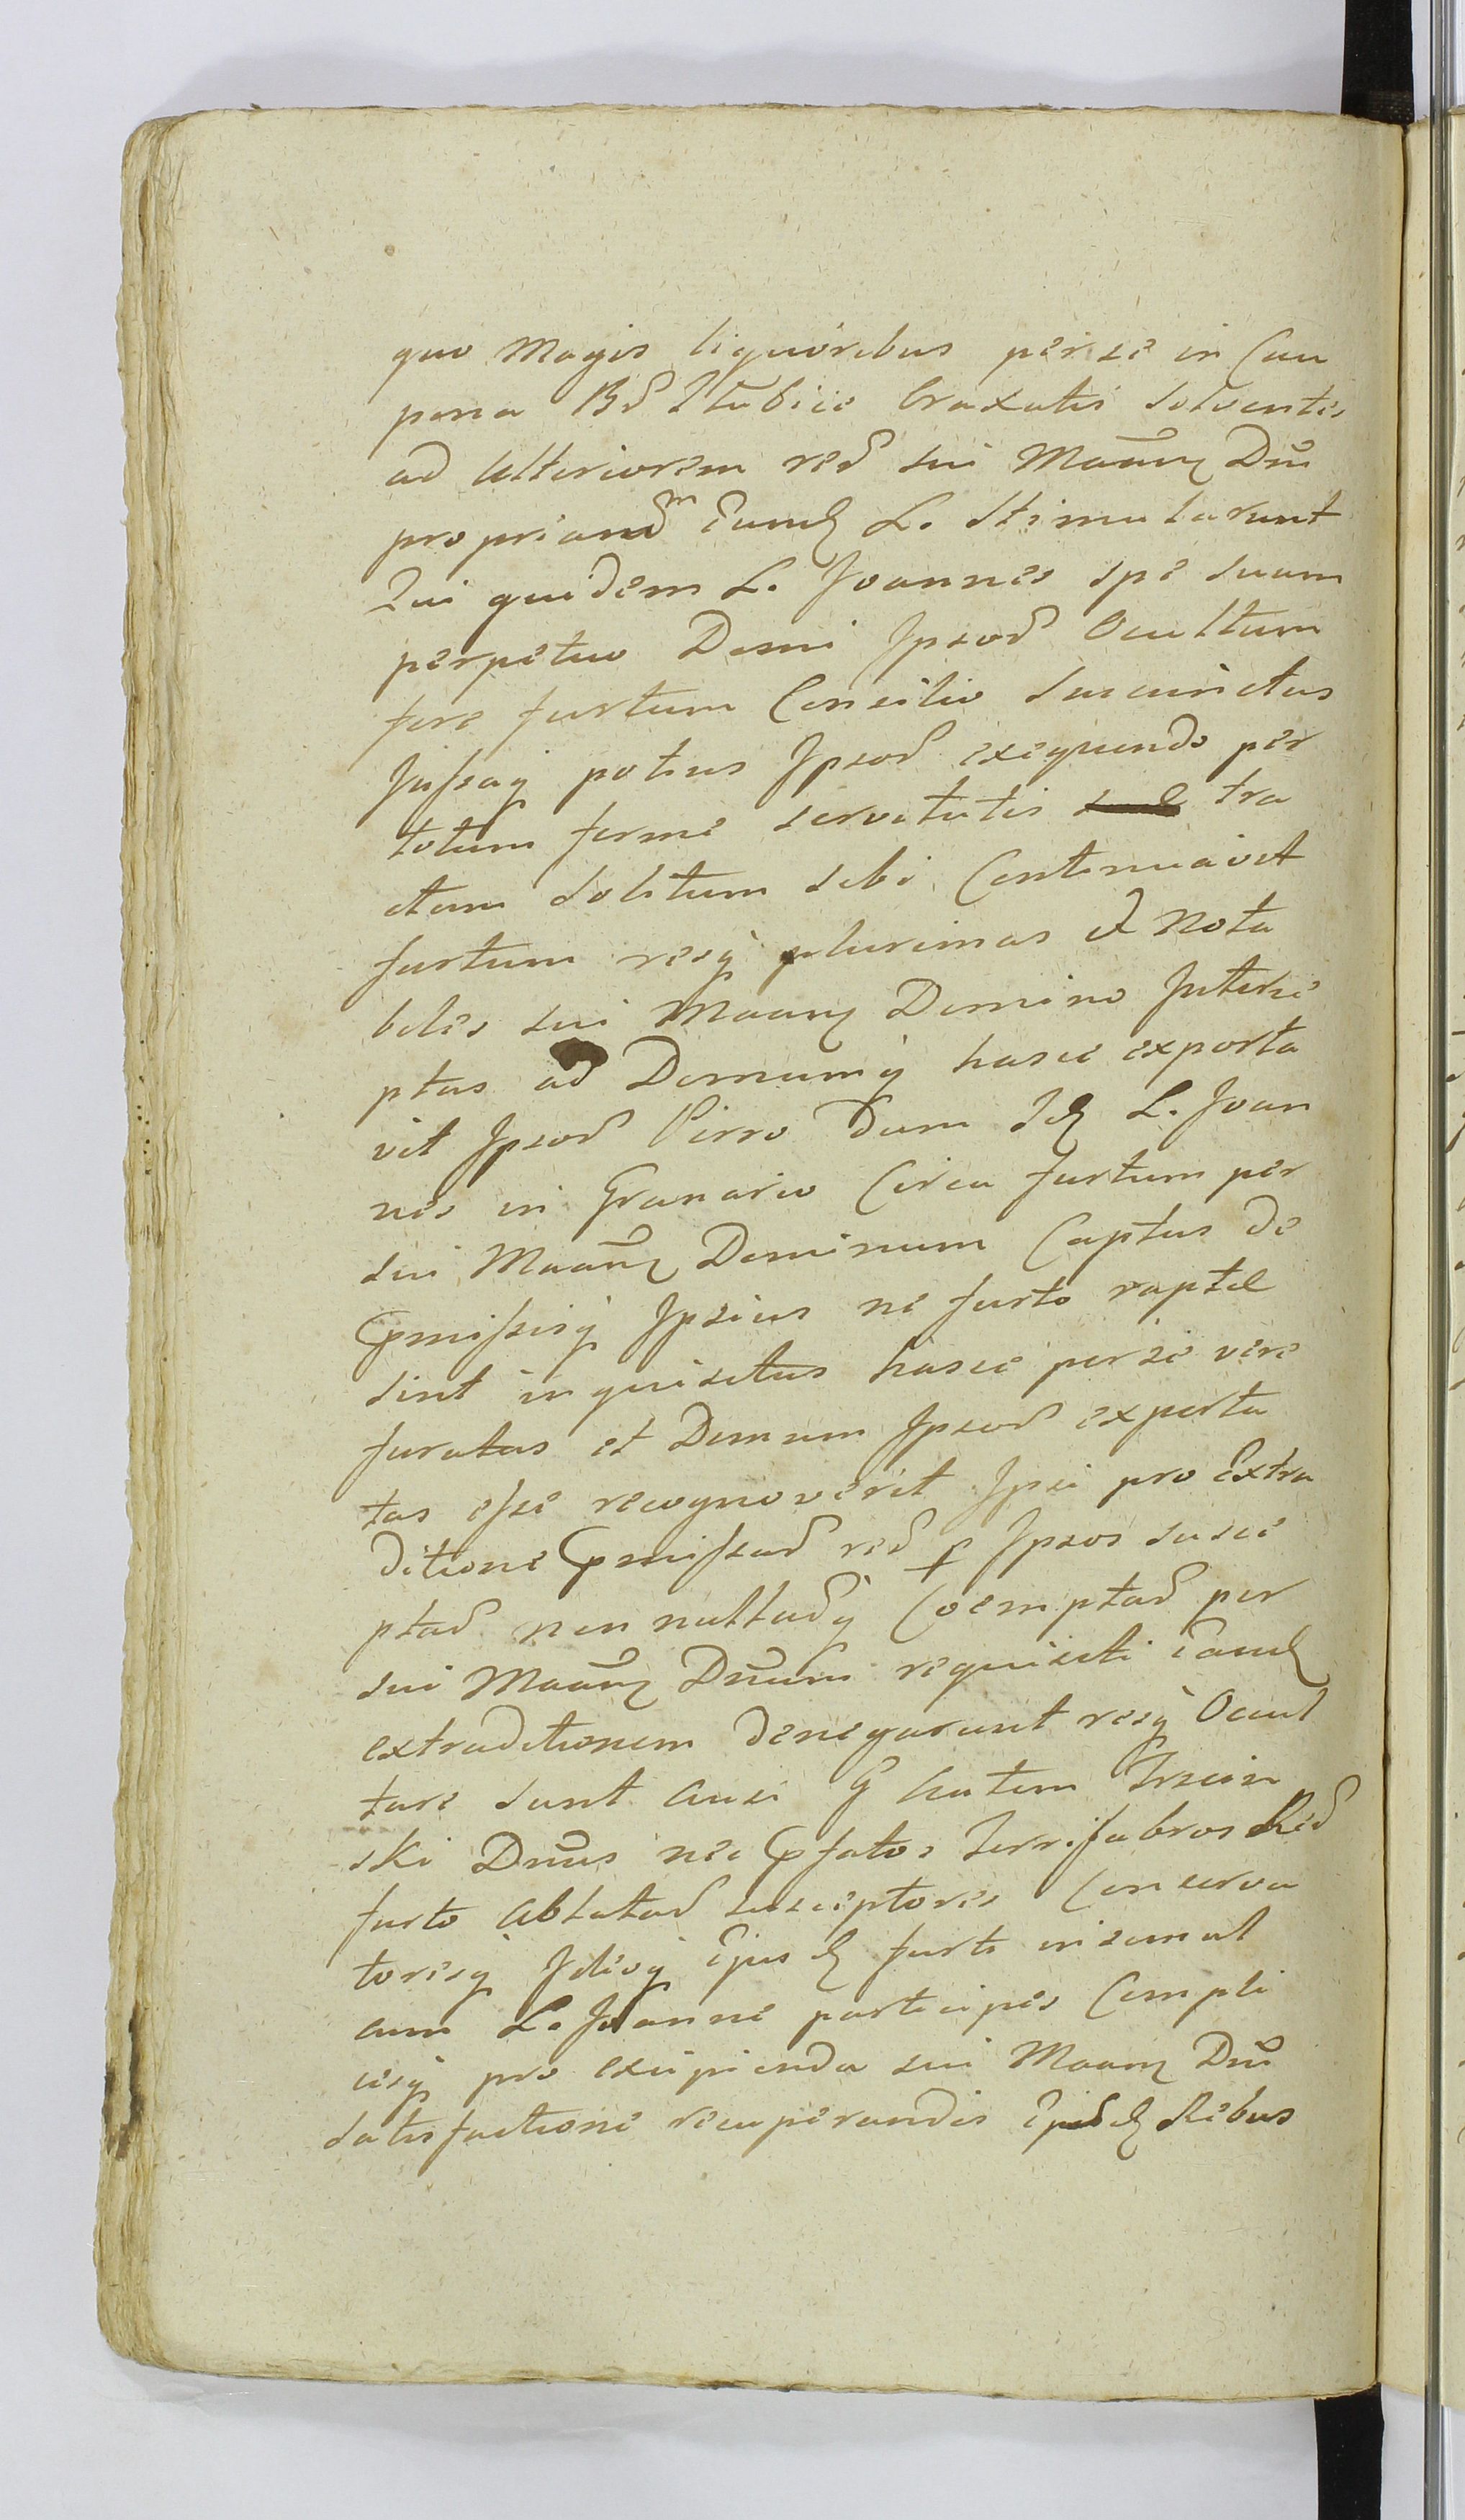 quo Magis liquoribus per se in Cau
pona Bd braxatis solventes
ad Ulteriorem red sui Maanz Dni
propriand^m Eundz L. Stimularunt
Qui quidem L. Joannes spe suam
perpetuo Domi Ipsod Ocultum
fore furtum Consilio succinctus
Jussaq potius Ipsod exequendo per
totum ferme servitutis tra
ctum Solitum sibi Continuavit
furtum resq plurimas et Nota
biles sui Maanz Domino Interce
ptas ad Domumq hasce exporta
vit Ipsod Virro Dum Idz L. Joan
nes in Granario Circa furtum per
sui Maanz Dominum Captus de
Pmissisq Ipsius ne furto raptæ
sint inquisitus hasce per se vere
furatas et Domum Ipsod exporta
tas esse recognoverit Ipsi pro Extra
ditione Pmissad red p Ipsos susce
ptad non nulladq Coemptad per
sui Maanz Dnum requisiti Eandz
extraditionem denegarunt resq Ocul
tare sunt ausi G hutem
ski Dnus nec Pfatos ferrifabros Red
furto Ablatad susceptores Conserva
toresq Ideoq Ejusdz furti insimul
cum L. Joanne participes Compli
cesq pro excipienda sui Maanz Dni
satisfactione recuperandis Ejusdz Rebus